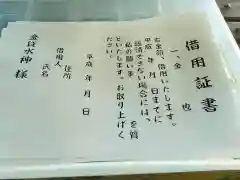 借用証書
一、金 也
右金額、借用いたします。
平成 年 月 日までに
返済できない場合には、
私の願い事 を質
といたします。お取り上げく
ださい。
平成 年 月 日
借用人 住所
氏名
金段水神様